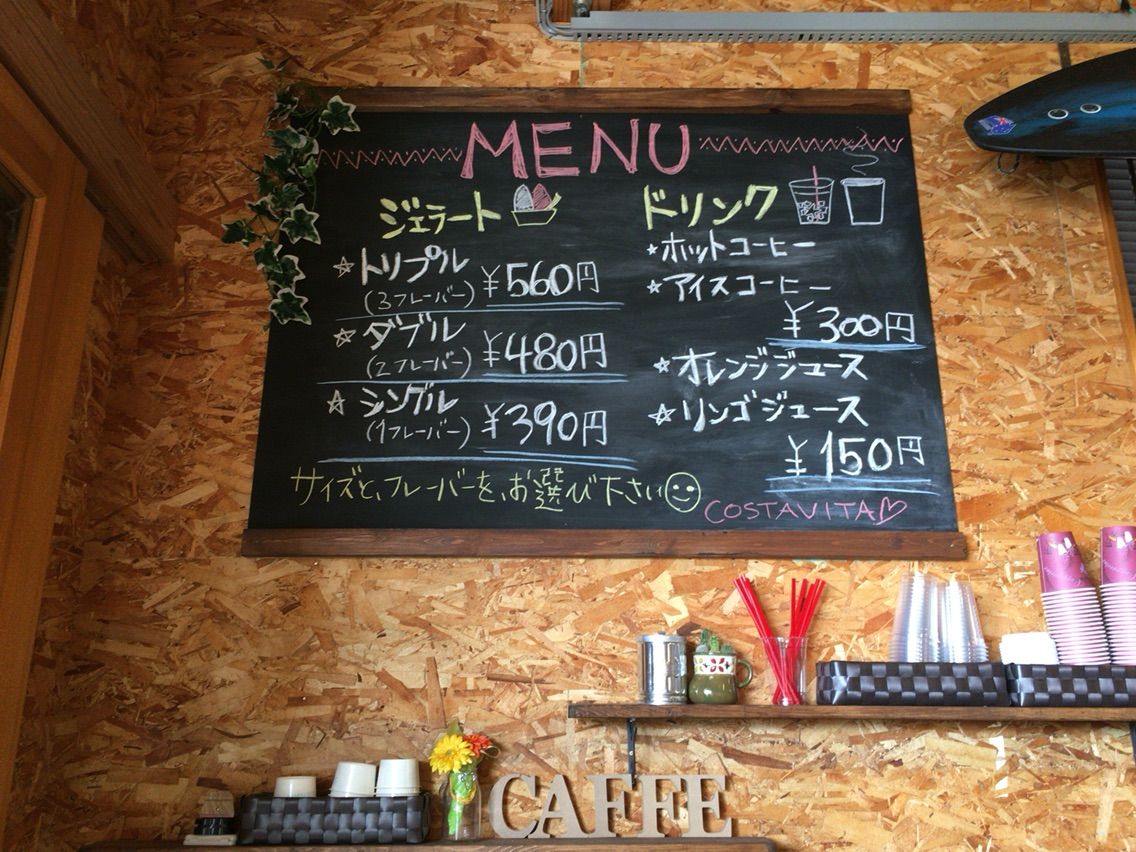 MENU
ジェラート
☆トリプル
(3フレーバー) ¥560円
☆ダブル
(2フレーバー) ¥480円
☆シングル
(1フレーバー) ¥390円
サイズと、フレーバーを、お選び下さい
ドリンク
★ホットコーヒー
☆アイスコーヒー
¥300円
★オレンジジュース
☆リンゴジュース
¥150円
COSTAVITA
CAFFE